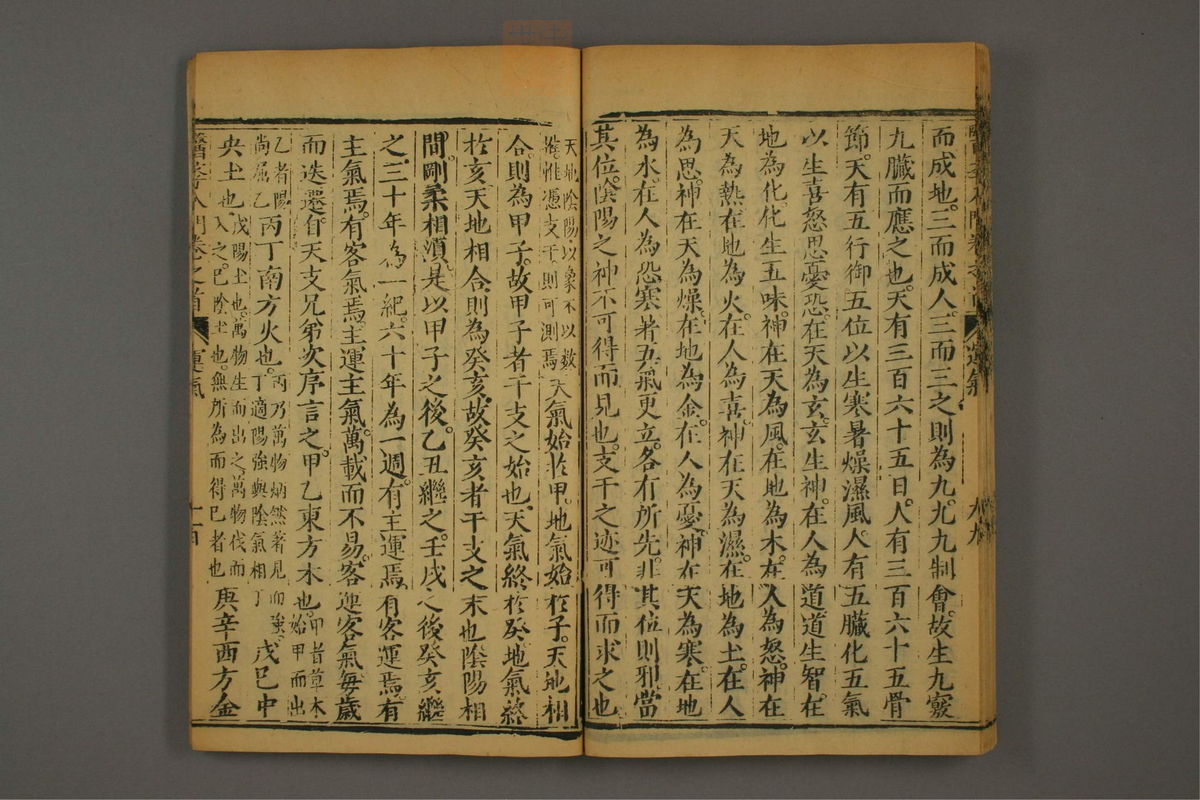 而成地三而成人三而三之則為九九九制會故生九竅
九臟而應之也天有三百六十五日人有三百六十五骨
節天有五行御五位以生寒暑燥濕風人有五臟化五氣
以生喜怒思憂恐在天為玄玄生神在人為道道生智在
地為化化生五味神在天為風在地為木在人為怒神在
天為熱在地為火在人為喜神在天為濕在地為土在人
為思神在天為燥在地為金在人為憂神在天為寒在地
為水在人為恐寒暑五氣更立各有所先非其位則邪當
其位陰陽之神不可得而見也支干之迹可得而求之也
天地陰陽以象不以數
推惟憑支干則可測焉
天氣始於甲地氣始於子天地相
合則為甲子故甲子者干支之始也天氣終於癸地氣終
於亥天地相合則為癸亥故癸亥者干支之末也陰陽相
間剛柔相須是以甲子之後乙丑繼之壬戌之後癸亥繼
之三十年為一紀六十年為一週有主運焉有客運焉有
主氣焉有客氣焉主運主氣萬載而不易客運客氣每歲
而迭遷自天支兄弟次序言之甲乙東方木也
甲者草木
始甲而出
乙者陽
尚屈乙
丙丁南方火也
丙乃萬物炳然著見而強
丁適陽強與陰氣相丁
戊巳中
央土也
戊陽土也萬物生而出之萬物伐而
入之巳陰土也無所為而得巳者也
庚辛西方金
醫學入門卷之首
運氣
十四